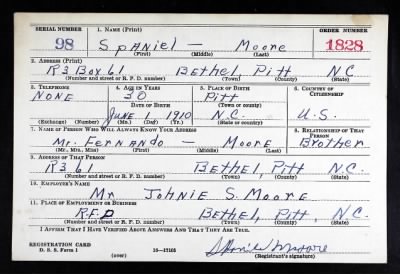 SERIAL NUMBER 1. NAME (Print) ORDER NUMBER
98 Spaniel — Moore 1828
(First) (Middle) (Last)
2. ADDRESS (Print)
R3 Box 61 Bethel Pitt N.C.
(Number and street or R. F. D. number) (Town) (County) (State)
3. TELEPHONE 4. AGE IN YEARS 5. PLACE OF BIRTH 6. COUNTRY OF CITIZENSHIP
None 30 Pitt
DATE OF BIRTH (Town or county)
June 1 1910 N.C. U.S.
(Exchange) (Number) (Mo.) (Day) (Yr.) (State or country)
7. NAME OF PERSON WHO WILL ALWAYS KNOW YOUR ADDRESS 8. RELATIONSHIP OF THAT PERSON
Mr. Fernando — Moore Brother
(Mr., Mrs., Miss) (First) (Middle) (Last)
9. ADDRESS OF THAT PERSON
R3 61 Bethel, Pitt N.C.
(Number and street or R. F. D. number) (Town) (County) (State)
10. EMPLOYER'S NAME
Mr Johnie S. Moore
11. PLACE OF EMPLOYMENT OR BUSINESS
R.F.D Bethel, Pitt, N.C.
(Number and street or R. F. D. number) (Town) (County) (State)
I AFFIRM THAT I HAVE VERIFIED ABOVE ANSWERS AND THAT THEY ARE TRUE.
REGISTRATION CARD
D. S. S. Form 1 (over) 16—17105 Spaniel Moore
(Registrant's signature)